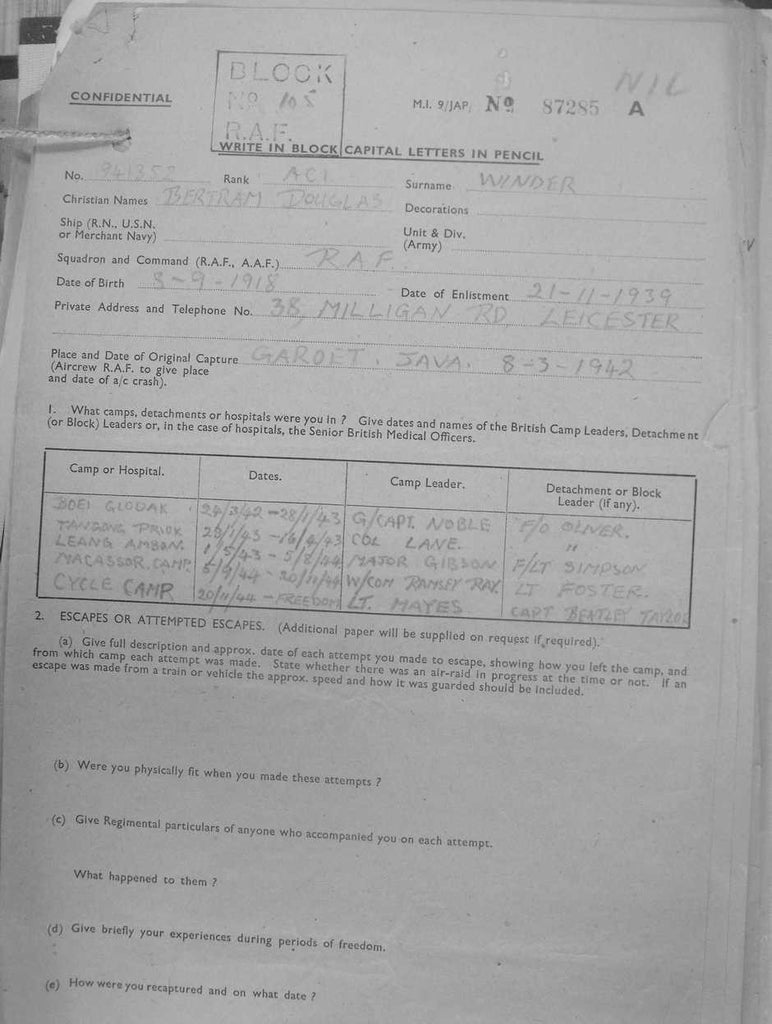 NIL
BLOCK
CONFIDENTIAL
No 105
M.I. 9/JAP. No 87285 A
R.A.F.
WRITE IN BLOCK CAPITAL LETTERS IN PENCIL
No. 941352 Rank AC1 Surname WINDER
Christian Names BERTRAM DOUGLAS Decorations
Ship (R.N., U.S.N. or Merchant Navy) Unit & Div. (Army)
Squadron and Command (R.A.F., A.A.F.) RAF
Date of Birth 8-9-1918 Date of Enlistment 21-11-1939
Private Address and Telephone No. 38, MILLIGAN RD, LEICESTER
Place and Date of Original Capture GAROET, JAVA. 8-3-1942
(Aircrew R.A.F. to give place
and date of a/c crash).
1. What camps, detachments or hospitals were you in ? Give dates and names of the British Camp Leaders, Detachment
(or Block) Leaders or, in the case of hospitals, the Senior British Medical Officers.
Camp or Hospital. Dates. Camp Leader. Detachment or Block Leader (if any).
BOEI GLODAK 24/3/42-28/1/43 G/CAPT. NOBLE F/O OLIVER.
TANGONG PRIOK 28/1/43-16/4/43 COL LANE. "
LEANG AMBON. 1/5/43-5/8/44 MAJOR GIBSON F/LT SIMPSON
MACASSOR CAMP. 5/9/44-20/11/44 W/COM RAMSEY RAY. LT FOSTER.
CYCLE CAMP 20/11/44-FREEDOM LT. MAYES CAPT BENTLEY TAYLOR
2. ESCAPES OR ATTEMPTED ESCAPES. (Additional paper will be supplied on request if required).
(a) Give full description and approx. date of each attempt you made to escape, showing how you left the camp, and
from which camp each attempt was made. State whether there was an air-raid in progress at the time or not. If an
escape was made from a train or vehicle the approx. speed and how it was guarded should be included.
(b) Were you physically fit when you made these attempts ?
(c) Give Regimental particulars of anyone who accompanied you on each attempt.
What happened to them ?
(d) Give briefly your experiences during periods of freedom.
(e) How were you recaptured and on what date ?